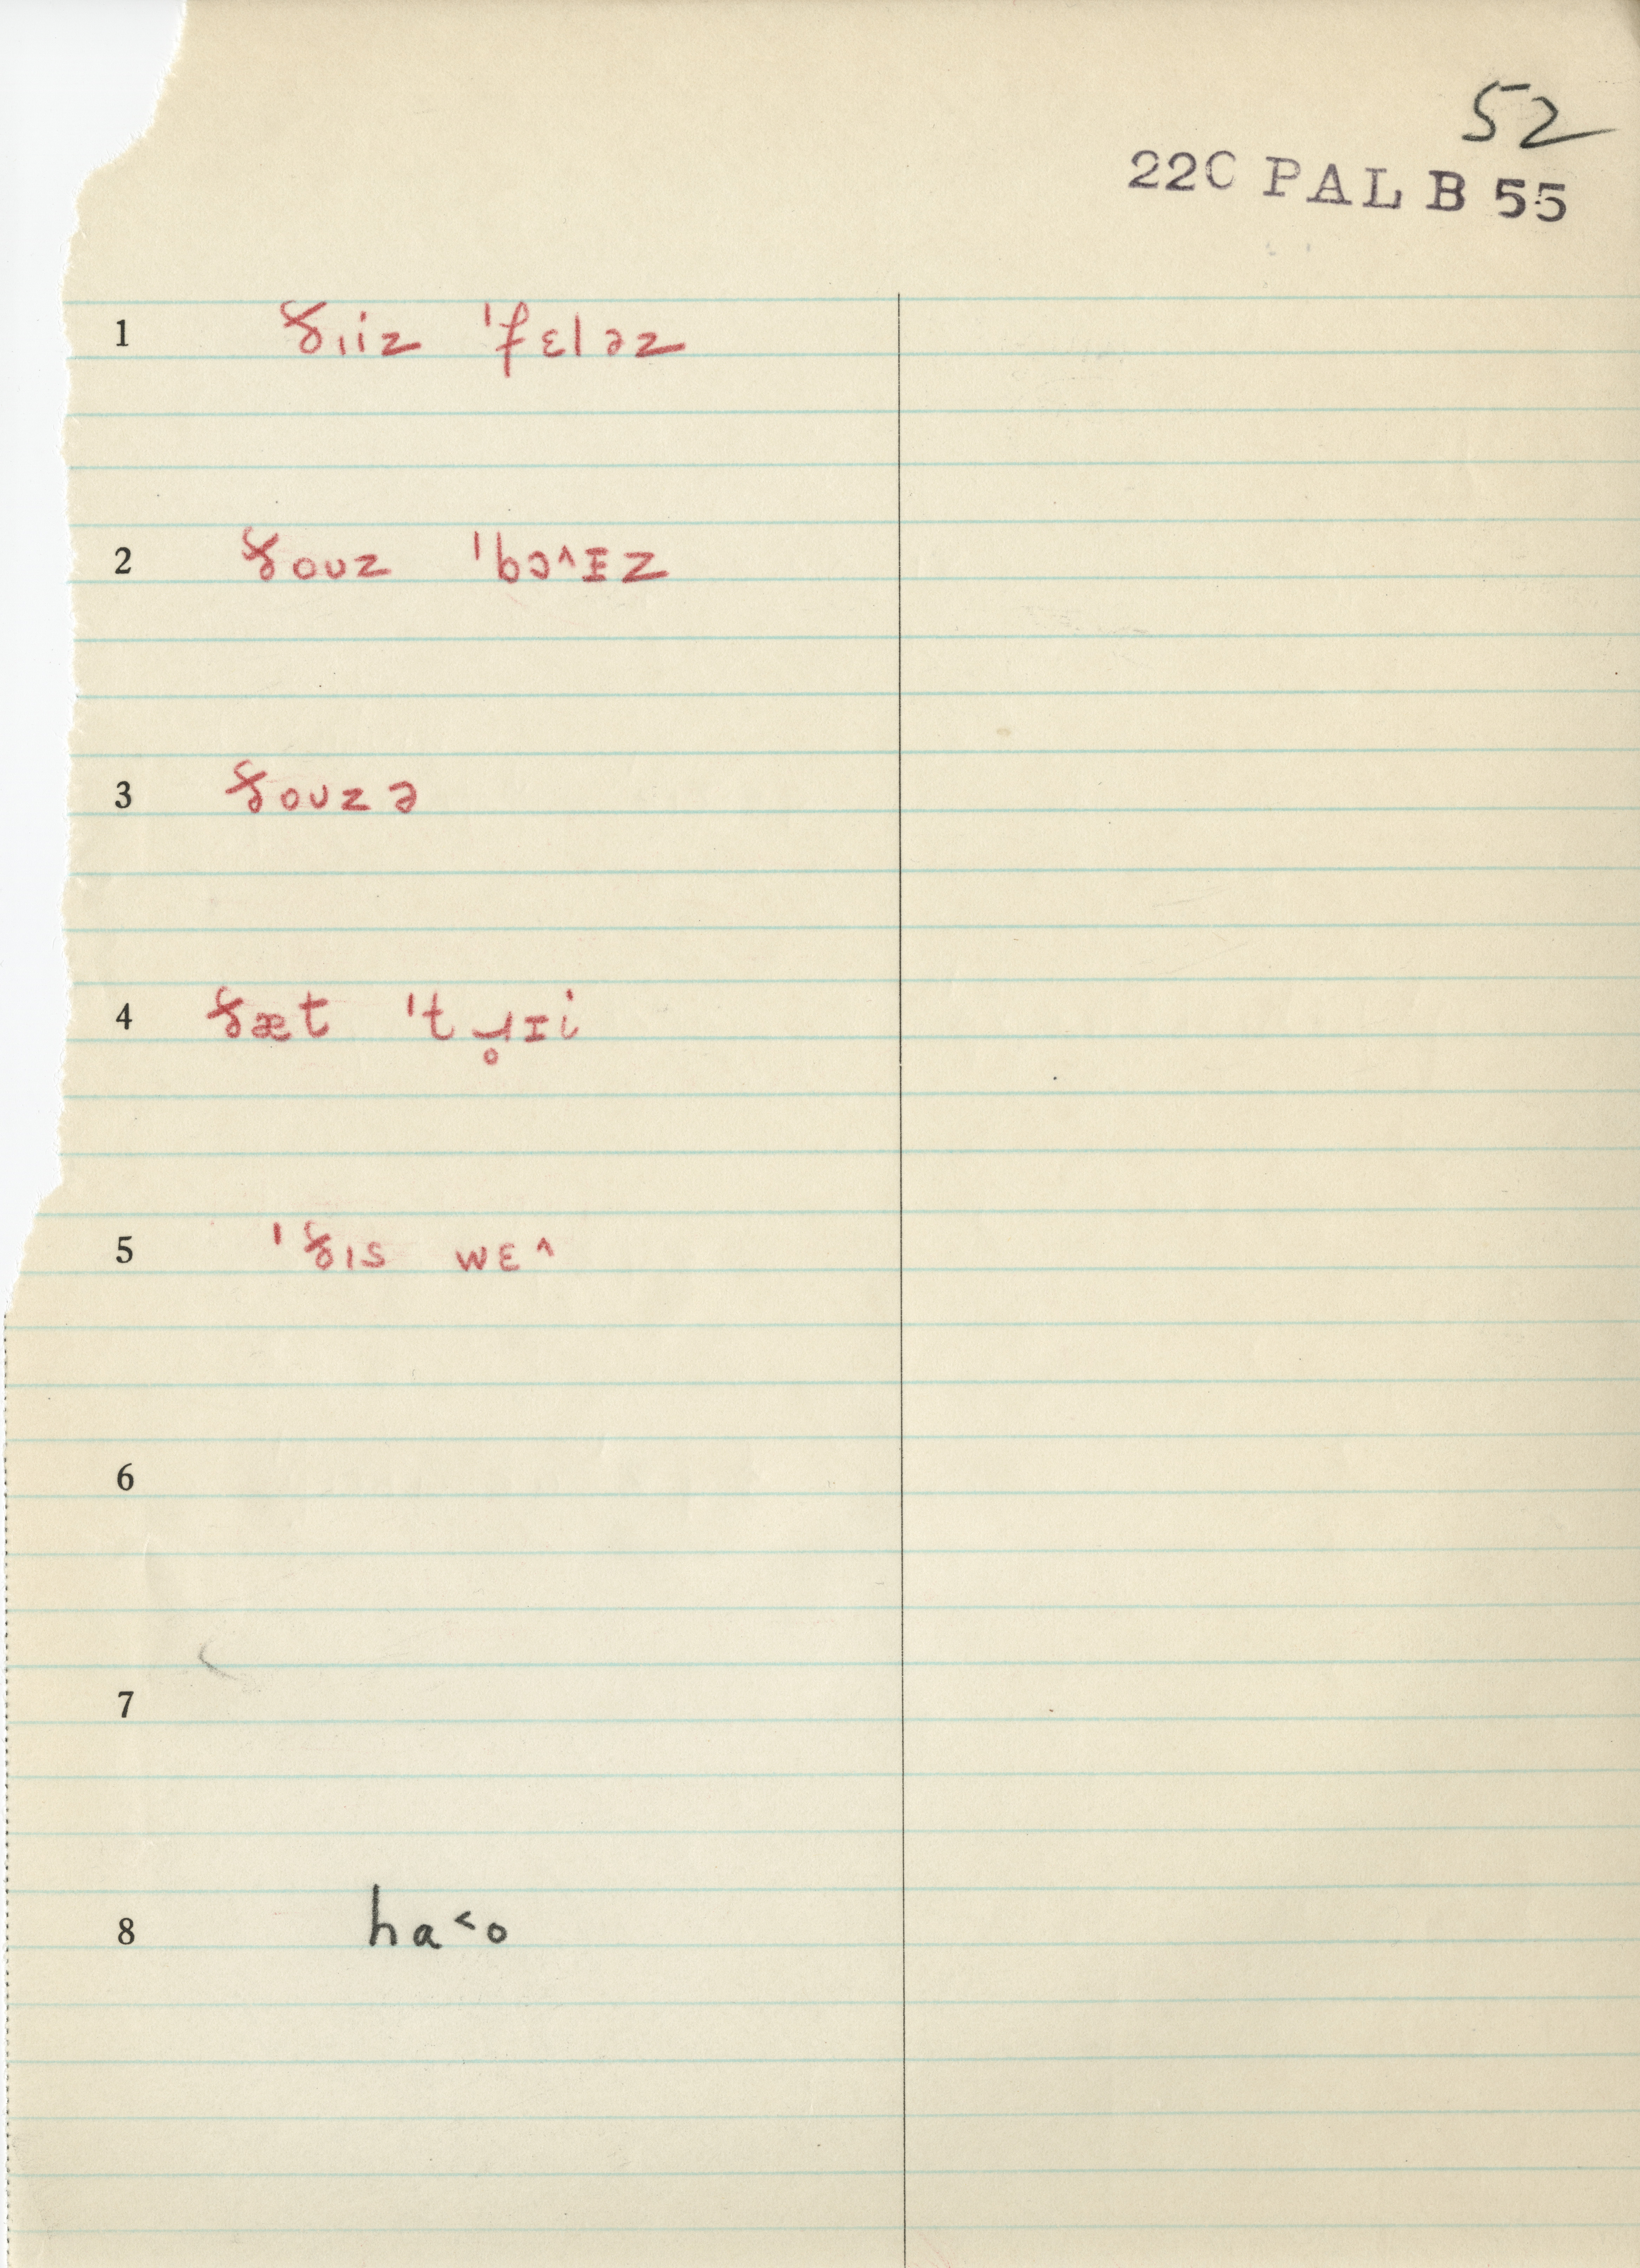 52
22C PAL B 55
1 ðɪiz ˈfɛləz
2 ðoʊz ˈbɔ^ɪz
3 ðoʊzə
4 ðæt ˈtɹ̥ɪi
5 ˈðɪs wɛ^
6
7
8 ha˂o